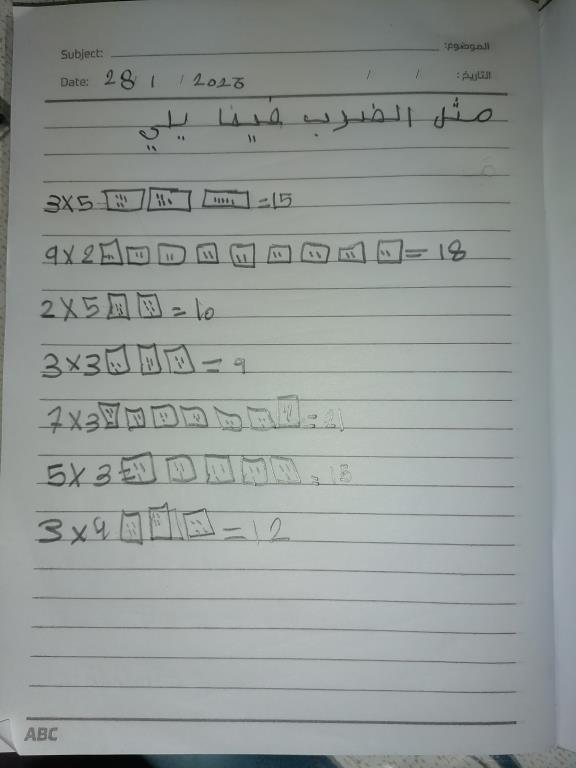 Subject: الموضوع:
Date: 28 / 1 / 2026 / / التاريخ:
مثل الضرب فيما يلي
3x5 =15
9x2 = 18
2x5 = 10
3x3 = 9
7x3 = 21
5x3 = 15
3x4 = 12
ABC